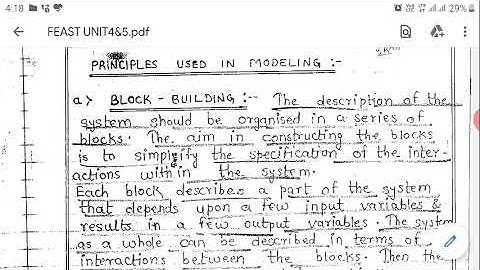 4:18 29%
FEAST UNIT4&5.pdf
PRINCIPLES USED IN MODELING :-
a) BLOCK - BUILDING :-- The description of the
system should be organised in a series of
blocks. The aim in constructing the blocks
is to simplify the specification of the inter-
actions within the system.
Each block describes a part of the system
that depends upon a few input variables &
results in a few output variables. The system
as a whole can be described in terms of
interactions between the blocks. Then the